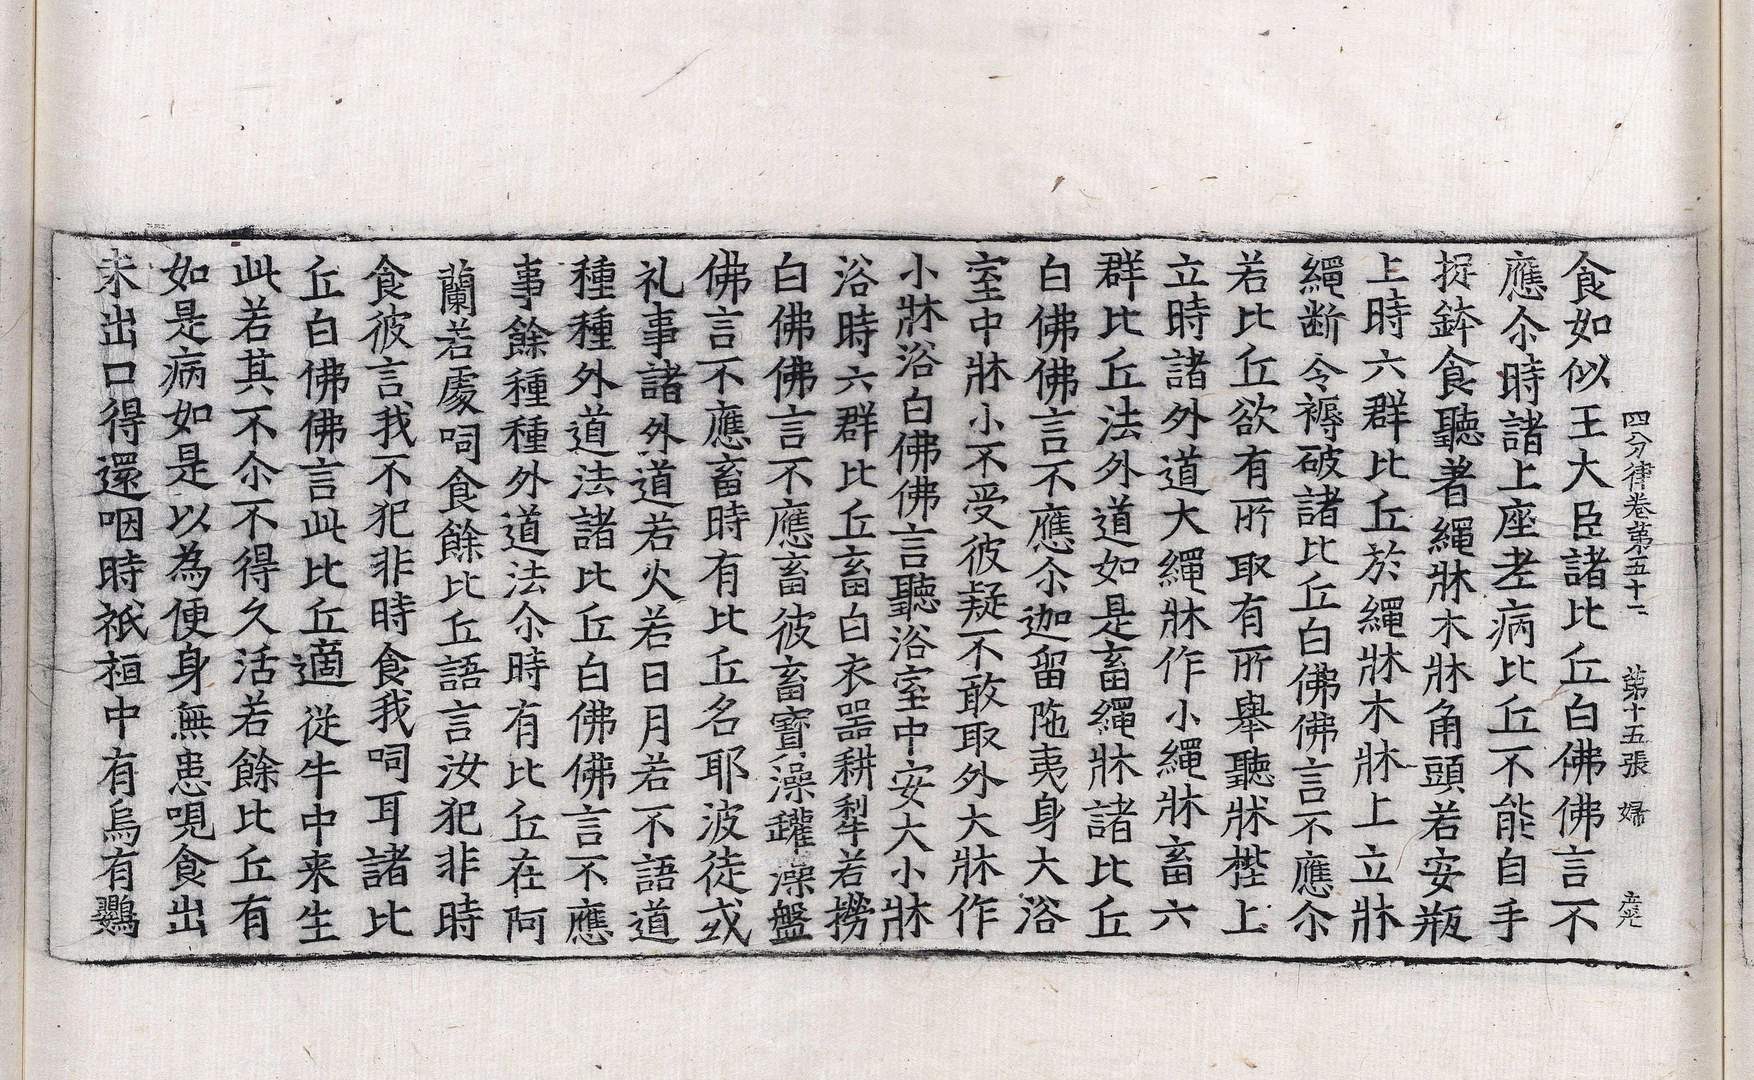 四分律卷第五十二 第十五張 婦
食如似王大臣諸比丘白佛佛言不
應尒時諸上座老病比丘不能自手
捉鉢食聽著繩牀木牀角頭若安瓶
上時六群比丘於繩牀木牀上立牀
繩斷令褥破諸比丘白佛佛言不應尒
若比丘欲有所取有所舉聽牀桄上
立時諸外道大繩牀作小繩牀畜六
群比丘法外道如是畜繩牀諸比丘
白佛佛言不應尒迦留陁夷身大浴
室中牀小不受彼疑不敢取外大牀作
小牀浴白佛佛言聽浴室中安大小牀
浴時六群比丘畜白衣器耕犁若撈
白佛佛言不應畜彼畜寶澡罐澡盤
佛言不應畜時有比丘名耶波徒或
礼事諸外道若火若日月若不語道
種種外道法諸比丘白佛佛言不應
事餘種種外道法尒時有比丘在阿
蘭若處呞食餘比丘語言汝犯非時
食彼言我不犯非時食我呞耳諸比
丘白佛佛言此比丘適從牛中来生
此若其不尒不得久活若餘比丘有
如是病如是以為便身無患哯食出
未出口得還咽時祇桓中有烏有鸚